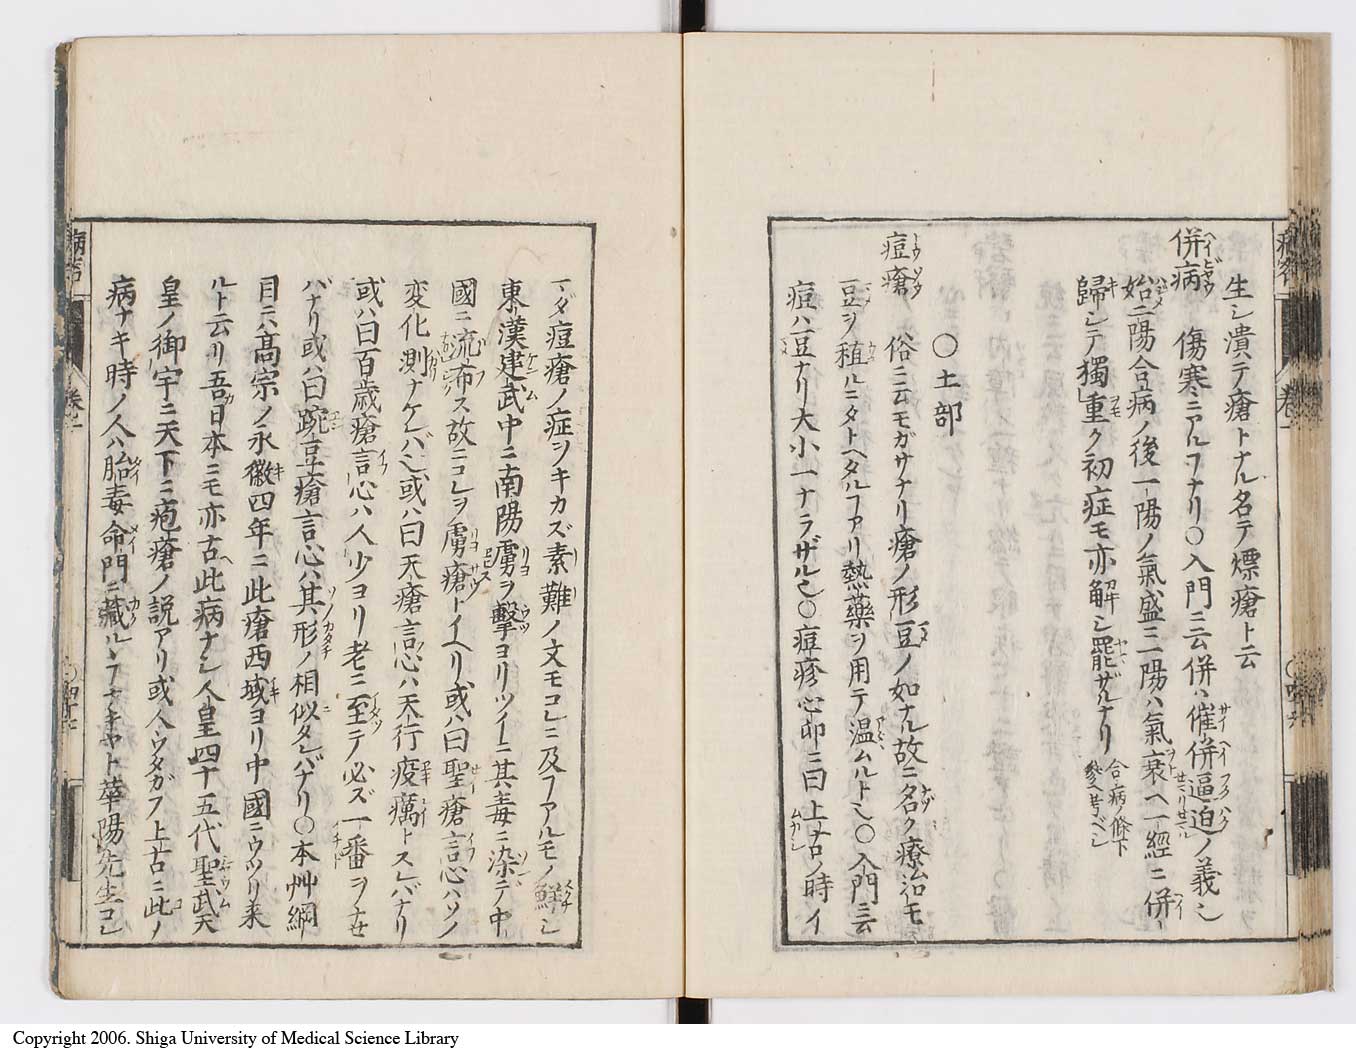 生シ潰テ瘡トナル名テ熛瘡ト云
併病 傷寒ニアルヿナリ○入門ニ云併ハ催併逼迫ノ義ㇱ
始二陽合病ノ後一陽ノ氣盛ニ一陽ハ氣衰ヘ一經ニ併
歸シテ獨重ク初症モ亦解シ罷ザルナリ 合病ノ條下
參ヘ考ベシ
○土部
痘瘡 俗ニ云モガサナリ瘡ノ形豆ノ如ナル故ニ名ク療治モ
豆ヲ種ルニタトヘタルヿアリ熱藥ヲ用テ温ムルト○入門ニ云
痘ハ豆ナリ大小一ナラザル也○痘疹心印ニ曰上古ノ時イ
マダ痘瘡ノ症ヲキカズ素難ノ文モコレニ及ヿアルモノ鮮シ
東漢建武中ニ南陽虜ヲ擊ヨリツイニ其毒ニ染テ中
國ニ流布ス故ニコレヲ虜瘡トイヘリ或ハ曰聖瘡言心ハソノ
変化測ナケレバ也或ハ曰天瘡言心ハ天行疫癘トスレバナリ
或ハ曰百歳瘡言心ハ人少ヨリ老ニ至テ必ズ一番ヲナセ
バナリ或ハ曰豌豆瘡言心ハ其形ノ相似タレバナリ○本艸綱
目ニ六高宗ノ永徽四年ニ此瘡西域ヨリ中國ニウツリ来
ルト云リ吾日本ニモ亦古此病ナシ人皇四十五代聖武天
皇ノ御宇ニ天下ニ疱瘡ノ説アリ或人ウタガフ上古ニ此ノ
病ナキ時ノ人ハ胎毒命門ニ藏ルヿナキヤト華陽先生コレ
Copyright 2006. Shiga University of Medical Science Library